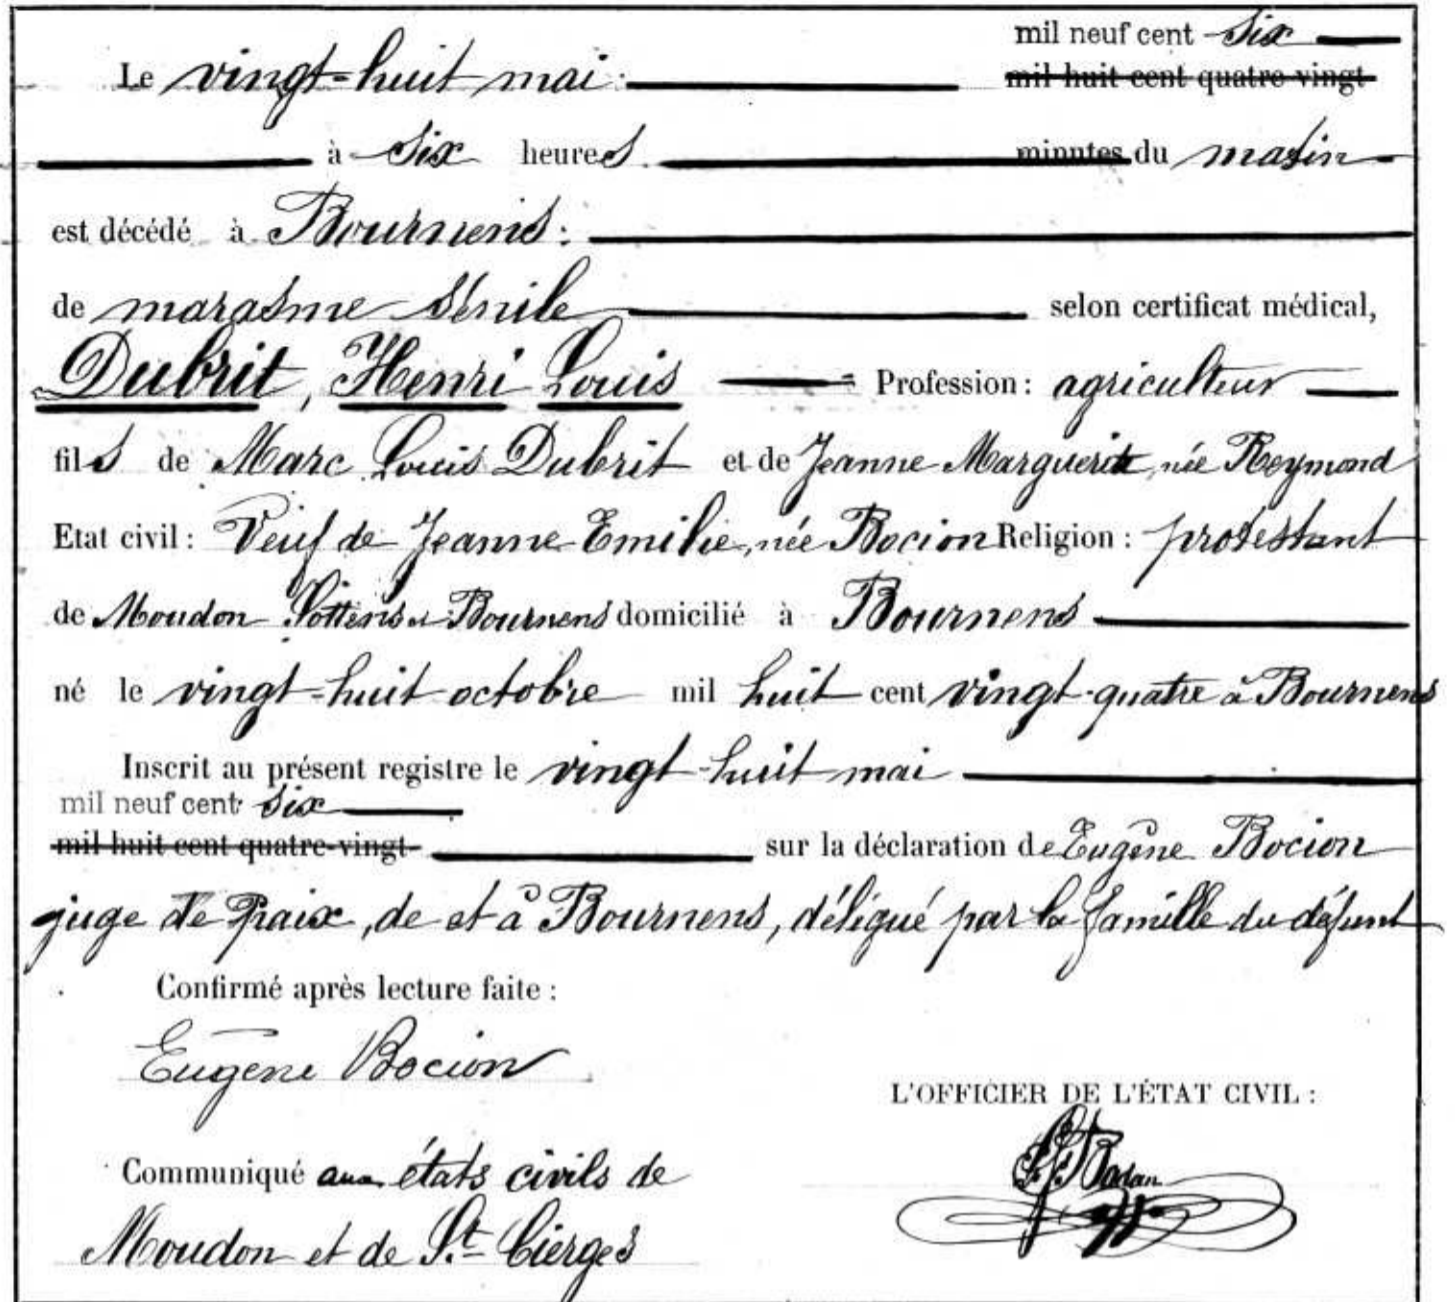 mil neuf cent six
Le vingt-huit mai mil huit cent quatre-vingt
à six heures minutes du matin
est décédé à Bournens:
de marasme sénile selon certificat médical,
Dubrit, Henri Louis Profession: agriculteur
fils de Marc Louis Dubrit et de Jeanne Marguerite, née Reymond
Etat civil: Veuf de Jeanne Emilie, née Bocion Religion: protestant
de Moudon Sottens & Bournens domicilié à Bournens
né le vingt-huit octobre mil huit cent vingt-quatre à Bournens
Inscrit au présent registre le vingt-huit mai
mil neuf cent six
mil huit cent quatre-vingt sur la déclaration de Eugène Bocion
juge de Paix, de et à Bournens, délégué par la famille du défunt
Confirmé après lecture faite:
Eugène Bocion
L'OFFICIER DE L'ÉTAT CIVIL:
Communiqué aux états civils de
Moudon et de St. Cierges